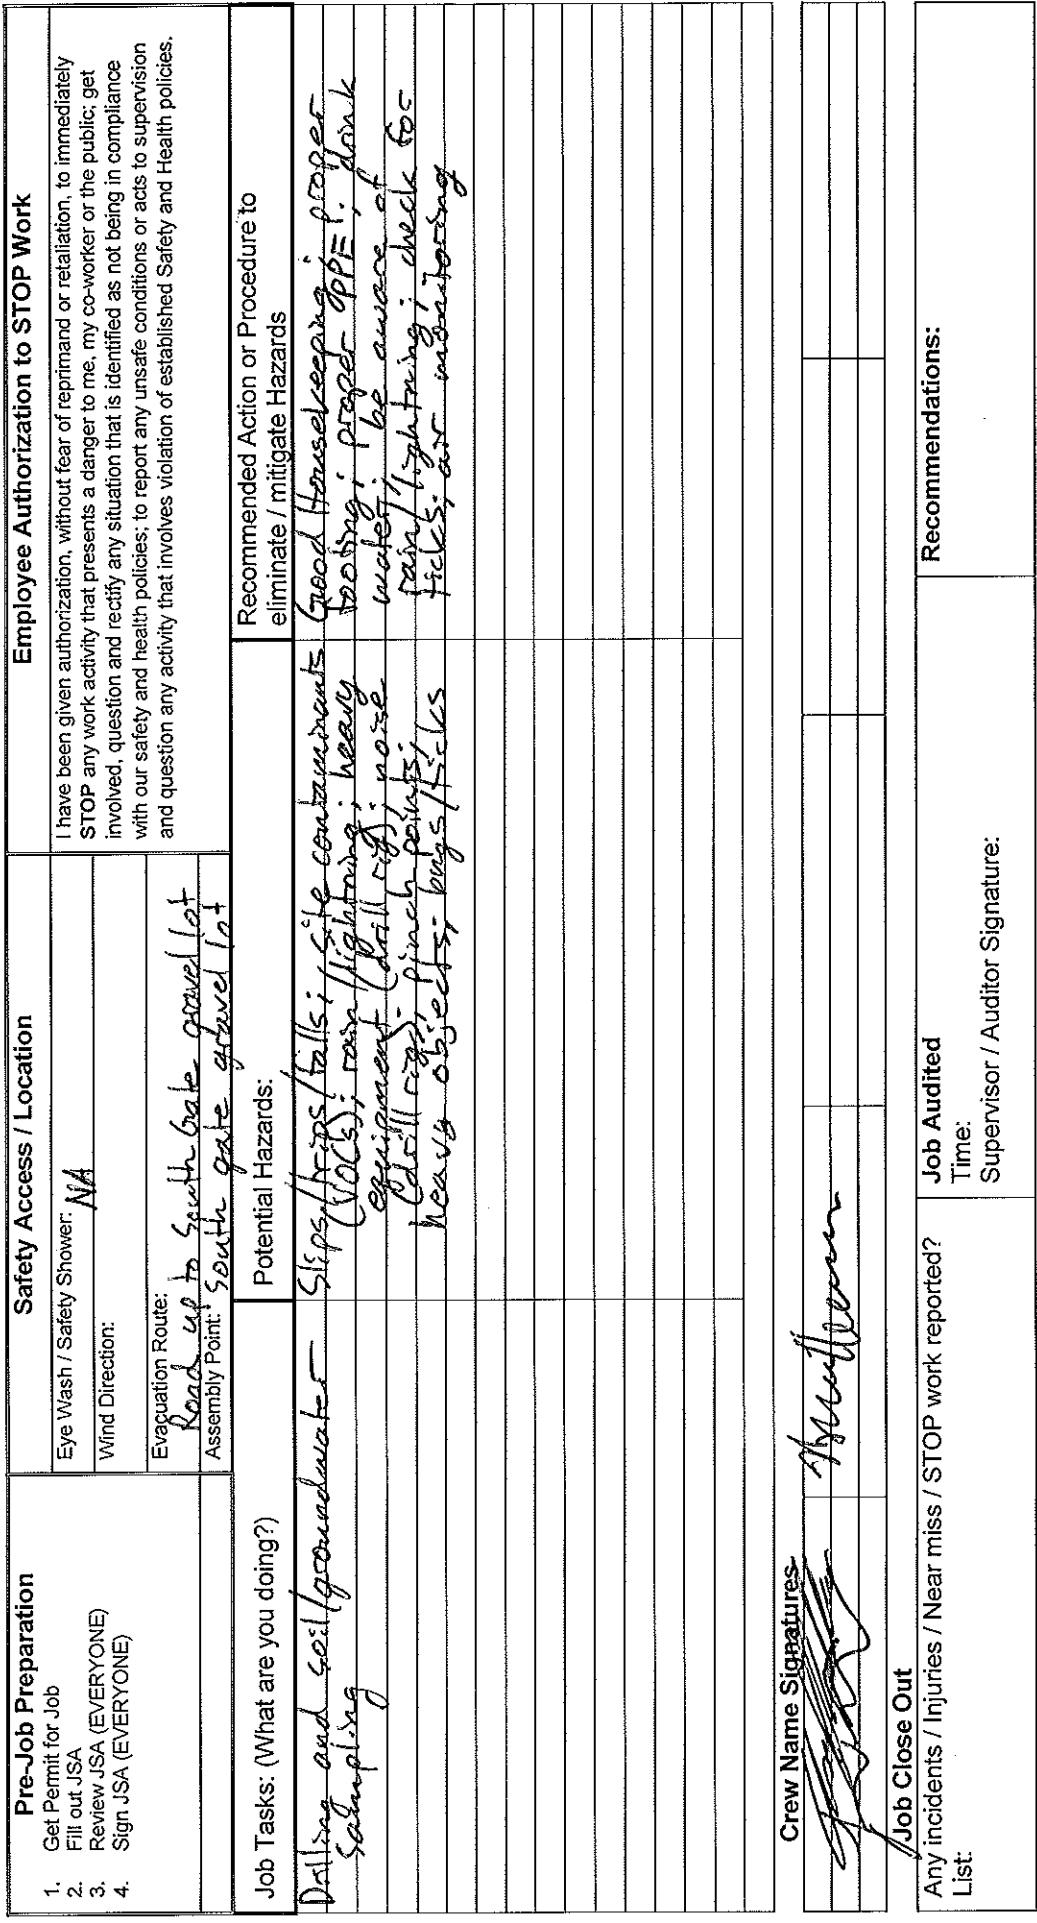 Pre-Job Preparation
1. Get Permit for Job
2. Fill out JSA
3. Review JSA (EVERYONE)
4. Sign JSA (EVERYONE)
Safety Access / Location
Eye Wash / Safety Shower: NA
Wind Direction:
Evacuation Route:
Road up to South Gate gravel lot
Assembly Point: South gate gravel lot
Employee Authorization to STOP Work
I have been given authorization, without fear of reprimand or retaliation, to immediately
STOP any work activity that presents a danger to me, my co-worker or the public; get
involved, question and rectify any situation that is identified as not being in compliance
with our safety and health policies; to report any unsafe conditions or acts to supervision
and question any activity that involves violation of established Safety and Health policies.
Job Tasks: (What are you doing?)
Drilling and soil/groundwater
sampling
Potential Hazards:
Slips/trips/falls; site contaminants
(VOCs); rain/lightning; heavy
equipment (drill rig); noise
(drill rig); pinch points;
heavy objects; bugs/ticks
Recommended Action or Procedure to
eliminate / mitigate Hazards
Good Housekeeping; proper
footing; proper PPE; drink
water; be aware of
rain/lightning; check for
ticks; air monitoring
Crew Name Signatures
Job Close Out
Any incidents / Injuries / Near miss / STOP work reported?
List:
Job Audited
Time:
Supervisor / Auditor Signature:
Recommendations: